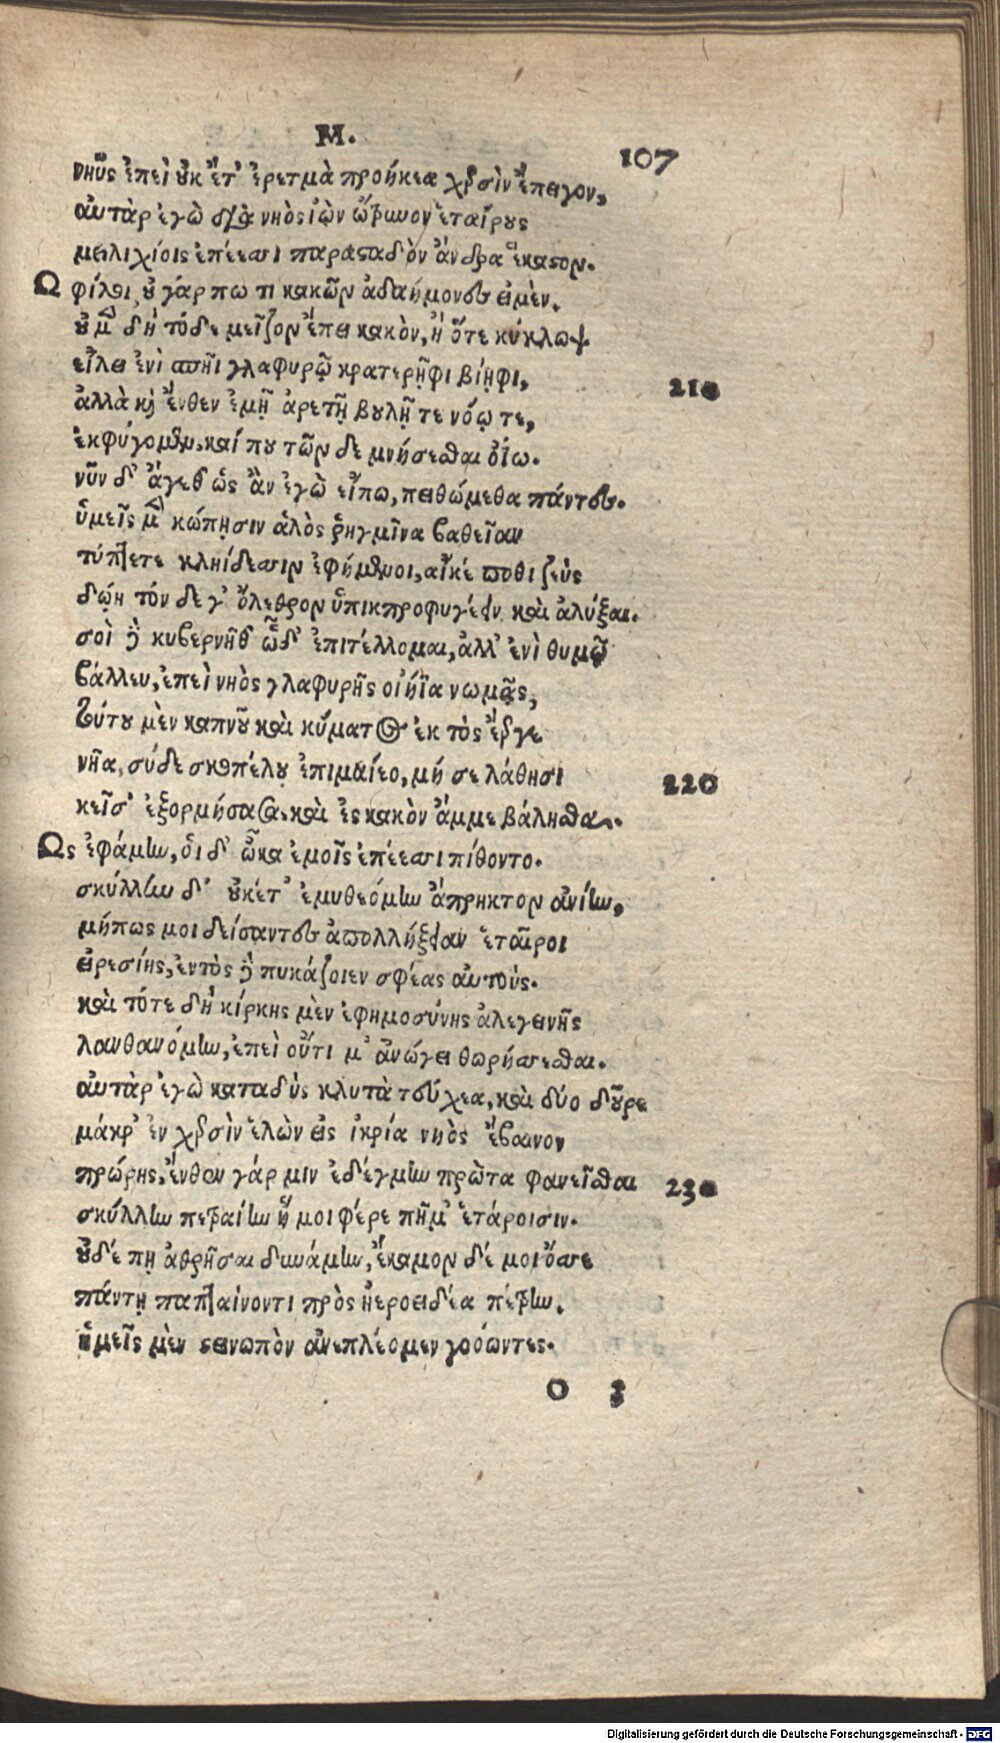 Μ.
107
νηῦς ἐπεὶ οὐκ ἔτ' ἐρετμὰ προήκεα χερσὶν ἔπειγον,
αὐτὰρ ἐγὼ διὰ νηὸς ἰὼν ὤτρυνον ἑταίρους
μειλιχίοις ἐπέεσσι παρασταδὸν ἄνδρα ἕκαστον.
Ω φίλοι, οὐ γάρ πω τι κακῶν ἀδαήμονες εἰμὲν.
οὐ μὲν δὴ τόδε μεῖζον ἔπει κακὸν, ἢ ὅτε κύκλωψ
εἴλει ἐνὶ σπῆι γλαφυρῷ κρατερῆφι βίηφι, 210
ἀλλὰ καὶ ἔνθεν ἐμῇ ἀρετῇ βουλῇ τε νόῳ τε,
ἐκφύγομεν, καί που τῶν δε μνήσεσθαι ὀΐω.
νῦν δ' ἄγεθ' ὡς ἂν ἐγὼ εἴπω, πειθώμεθα πάντες.
ὑμεῖς μὲν κώπῃσιν ἁλὸς ῥηγμῖνα βαθεῖαν
τύπτετε κληίδεσσιν ἐφήμενοι, αἴκέ ποθι ζεὺς
δώῃ τόν δε γ' ὄλεθρον ὑπικπροφυγέειν καὶ ἀλύξαι.
σοὶ δὲ κυβερνῆθ' ὧδ' ἐπιτέλλομαι, ἀλλ' ἐνὶ θυμῷ
βάλλευ, ἐπεὶ νηὸς γλαφυρῆς οἰήϊα νωμᾷς,
τούτου μὲν καπνοῦ καὶ κύματος ἐκ τὸς ἔεργε
νῆα, σύ δε σκοπέλου ἐπιμαίεο, μή σε λάθησι 220
κεῖσ' ἐξορμήσασα, καὶ ἐς κακὸν ἄμμε βάλησθα.
Ως ἐφάμην, οἱ δ' ὦκα ἐμοῖς ἐπέεσσι πίθοντο.
σκύλλην δ' οὐκέτ' ἐμυθεόμην ἄπρηκτον ἀνίην,
μήπως μοι δείσαντες ἀπολλήξειαν ἑταῖροι
εἰρεσίης, ἐντὸς δὲ πυκάζοιεν σφέας αὐτούς.
καὶ τότε δὴ κίρκης μὲν ἐφημοσύνης ἀλεγεινῆς
λανθανόμην, ἐπεὶ οὔτι μ' ἀνώγει θωρήσσεσθαι.
αὐτὰρ ἐγὼ καταδὺς κλυτὰ τεύχεα, καὶ δύο δοῦρε
μάκρ' ἐν χερσὶν ἑλὼν εἰς ἰκρία νηὸς ἔβαινον
πρώρης, ἔνθεν γάρ μιν ἐδέγμην πρῶτα φανεῖσθαι 230
σκύλλην πετραίην ἥ μοι φέρε πῆμ' ἑτάροισιν.
οὐδέ πῃ ἀθρῆσαι δυνάμην, ἔκαμον δέ μοι ὄσσε
πάντῃ παπταίνοντι πρὸς ἠεροειδέα πέτρην.
ἡμεῖς μὲν στεινωπὸν ἀνεπλέομεν γοόωντες.
O 3
Digitalisierung gefördert durch die Deutsche Forschungsgemeinschaft - DFG